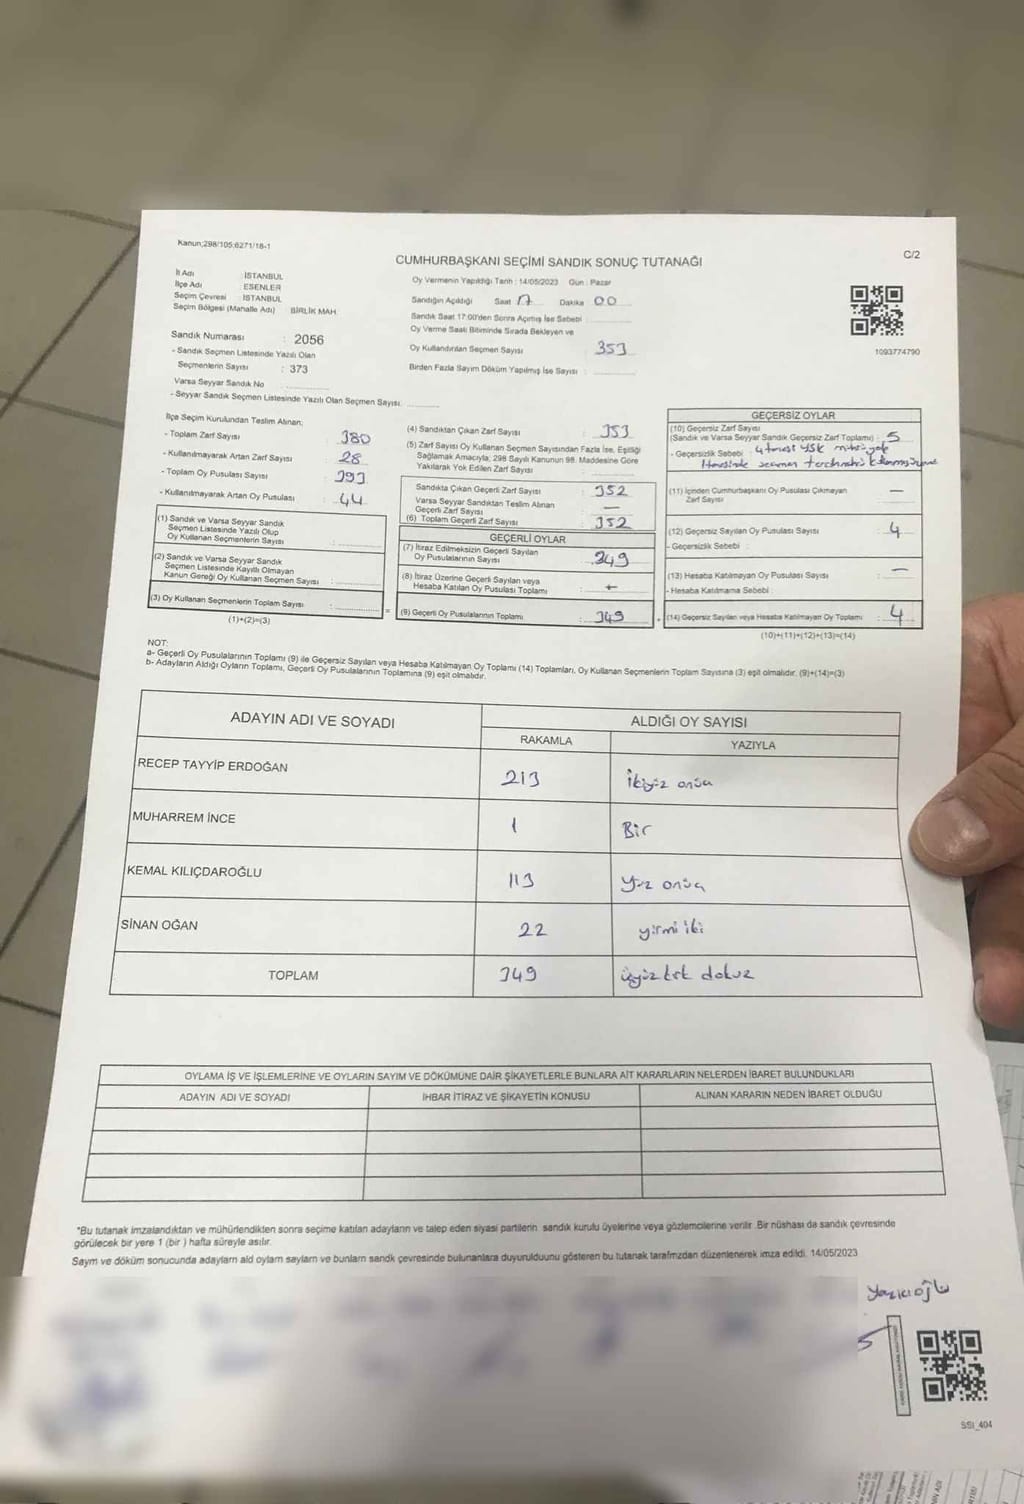 Kanun;298/105;6271/18-1
C/2
CUMHURBAŞKANI SEÇİMİ SANDIK SONUÇ TUTANAĞI
İl Adı : İSTANBUL
İlçe Adı : ESENLER
Seçim Çevresi : İSTANBUL
Seçim Bölgesi (Mahalle Adı) BİRLİK MAH.
Sandık Numarası : 2056
- Sandık Seçmen Listesinde Yazılı Olan
Seçmenlerin Sayısı : 373
Varsa Seyyar Sandık No
- Seyyar Sandık Seçmen Listesinde Yazılı Olan Seçmen Sayısı:
Oy Vermenin Yapıldığı Tarih : 14/05/2023 Gün : Pazar
Sandığın Açıldığı Saat 17 Dakika 00
Sandık Saat 17:00'den Sonra Açılmış İse Sebebi :
Oy Verme Saati Bitiminde Sırada Bekleyen ve
Oy Kullandırılan Seçmen Sayısı : 353
Birden Fazla Sayım Döküm Yapılmış İse Sayısı :
1093774790
İlçe Seçim Kurulundan Teslim Alınan;
- Toplam Zarf Sayısı : 380
- Kullanılmayarak Artan Zarf Sayısı : 28
- Toplam Oy Pusulası Sayısı : 393
- Kullanılmayarak Artan Oy Pusulası : 44
(1) Sandık ve Varsa Seyyar Sandık
Seçmen Listesinde Yazılı Olup
Oy Kullanan Seçmenlerin Sayısı :
(2) Sandık ve Varsa Seyyar Sandık
Seçmen Listesinde Kayıtlı Olmayan
Kanun Gereği Oy Kullanan Seçmen Sayısı :
(3) Oy Kullanan Seçmenlerin Toplam Sayısı :
(1)+(2)=(3)
(4) Sandıktan Çıkan Zarf Sayısı : 353
(5) Zarf Sayısı Oy Kullanan Seçmen Sayısından Fazla İse, Eşitliği
Sağlamak Amacıyla, 298 Sayılı Kanunun 98. Maddesine Göre
Yakılarak Yok Edilen Zarf Sayısı :
Sandıkta Çıkan Geçerli Zarf Sayısı : 352
Varsa Seyyar Sandıktan Teslim Alınan
Geçerli Zarf Sayısı : —
(6) Toplam Geçerli Zarf Sayısı : 352
GEÇERLİ OYLAR
(7) İtiraz Edilmeksizin Geçerli Sayılan
Oy Pusulalarının Sayısı : 349
(8) İtiraz Üzerine Geçerli Sayılan veya
Hesaba Katılan Oy Pusulası Toplamı :
(9) Geçerli Oy Pusulalarının Toplamı : 349
GEÇERSİZ OYLAR
(10) Geçersiz Zarf Sayısı
(Sandık ve Varsa Seyyar Sandık Geçersiz Zarf Toplamı) : 5
- Geçersizlik Sebebi : 4 tanesi YSK mührü yok
1 tanesinde seçmen
(11) İçinden Cumhurbaşkanı Oy Pusulası Çıkmayan
Zarf Sayısı : —
(12) Geçersiz Sayılan Oy Pusulası Sayısı : 4
- Geçersizlik Sebebi :
(13) Hesaba Katılmayan Oy Pusulası Sayısı : —
- Hesaba Katılmama Sebebi :
(14) Geçersiz Sayılan veya Hesaba Katılmayan Oy Toplamı : 4
(10)+(11)+(12)+(13)=(14)
NOT:
a- Geçerli Oy Pusulalarının Toplamı (9) ile Geçersiz Sayılan veya Hesaba Katılmayan Oy Toplamı (14) Toplamları, Oy Kullanan Seçmenlerin Toplam Sayısına (3) eşit olmalıdır. (9)+(14)=(3)
b- Adayların Aldığı Oyların Toplamı, Geçerli Oy Pusulalarının Toplamına (9) eşit olmalıdır.
ADAYIN ADI VE SOYADI
ALDIĞI OY SAYISI
RAKAMLA YAZIYLA
RECEP TAYYİP ERDOĞAN 213 İkiyüz onüç
MUHARREM İNCE 1 Bir
KEMAL KILIÇDAROĞLU 113 Yüz onüç
SİNAN OĞAN 22 yirmi iki
TOPLAM 349 üçyüz kırk dokuz
OYLAMA İŞ VE İŞLEMLERİNE VE OYLARIN SAYIM VE DÖKÜMÜNE DAİR ŞİKAYETLERLE BUNLARA AİT KARARLARIN NELERDEN İBARET BULUNDUKLARI
ADAYIN ADI VE SOYADI
İHBAR İTİRAZ VE ŞİKAYETİN KONUSU
ALINAN KARARIN NEDEN İBARET OLDUĞU
*Bu tutanak imzalandıktan ve mühürlendikten sonra seçime katılan adayların ve talep eden siyasi partilerin sandık kurulu üyelerine veya gözlemcilerine verilir. Bir nüshası da sandık çevresinde
görülecek bir yere 1 (bir) hafta süreyle asılır.
Sayım ve döküm sonucunda adayların ald oyların sayıları ve bunların sandk çevresinde bulunanlara duyurulduunu gösteren bu tutanak tarafmzdan düzenlenerek imza edildi. 14/05/2023
Yazıcıoğlu
SSI_404